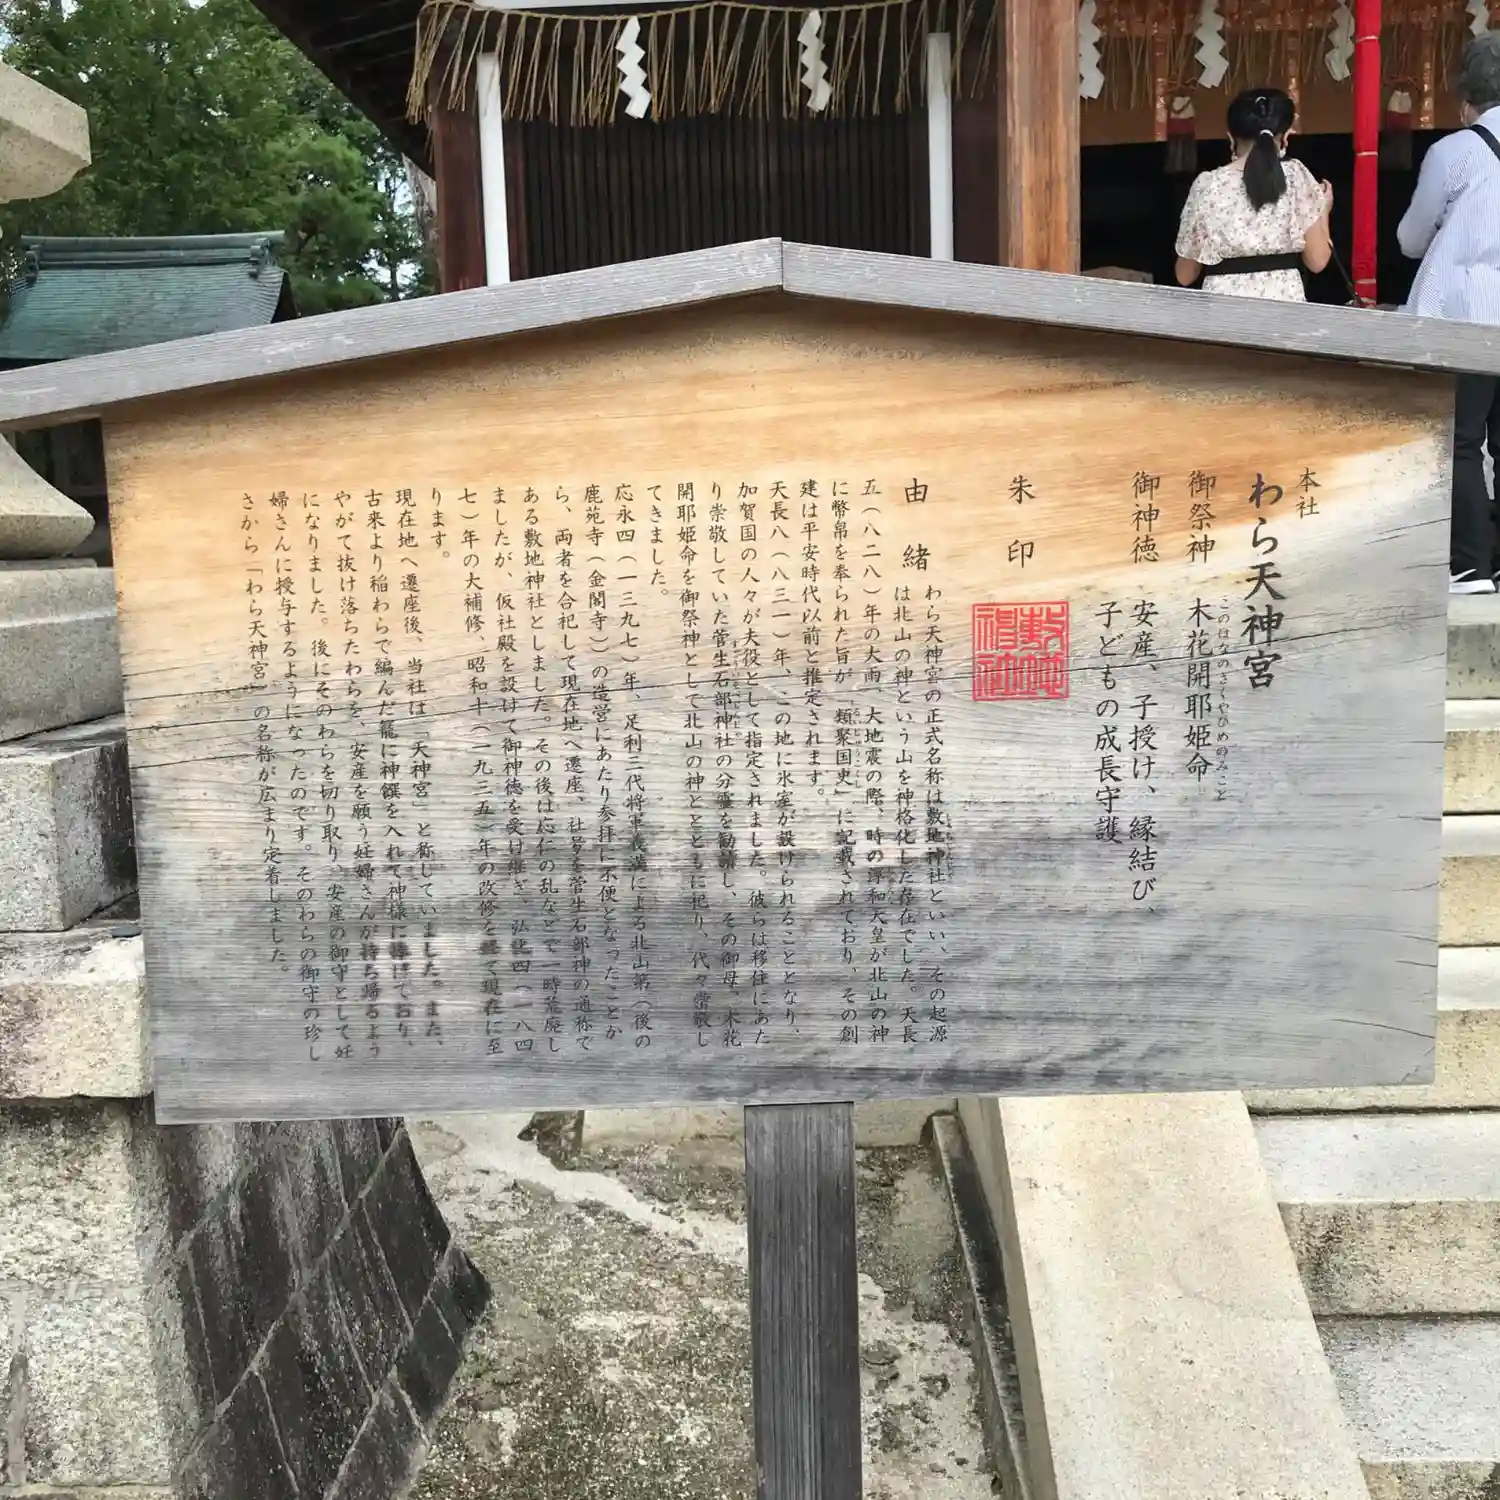 本社
わら天神宮
御祭神　木花開耶姫命
このはなのさくやひめのみこと
御神徳　安産、子授け、縁結び、
子どもの成長守護
朱印
敷地神社
由緒
わら天神宮の正式名称は敷地神社といい、その起源
は北山の神という山を神格化した存在でした。天長
五（八二八）年の大雨、大地震の際、時の淳和天皇が北山の神
に幣帛を奉られた旨が『類聚国史』に記載されており、その創
建は平安時代以前と推定されます。
天長八（八三一）年、この地に氷室が設けられることとなり、
加賀国の人々が夫役として指定されました。彼らは移住にあた
り崇敬していた菅生石部神社の分霊を勧請し、その御母、木花
開耶姫命を御祭神として北山の神とともに祀り、代々崇敬し
てきました。
応永四（一三九七）年、足利三代将軍義満による北山第（後の
鹿苑寺（金閣寺））の造営にあたり参拝に不便となったことか
ら、両者を合祀して現在地へ遷座、社号を菅生石部神の通称で
ある敷地神社としました。その後は応仁の乱などで一時荒廃し
ましたが、仮社殿を設けて御神徳を受け継ぎ、弘化四（一八四
七）年の大補修、昭和十（一九三五）年の改修を経て現在に至
ります。
現在地へ遷座後、当社は「天神宮」と称していました。また、
古来より稲わらで編んだ籠に神饌を入れて神様に捧げており、
やがて抜け落ちたわらを、安産を願う妊婦さんが持ち帰るよう
になりました。後にそのわらを切り取り、安産の御守として妊
婦さんに授与するようになったのです。そのわらの御守の珍し
さから「わら天神宮」の名称が広まり定着しました。